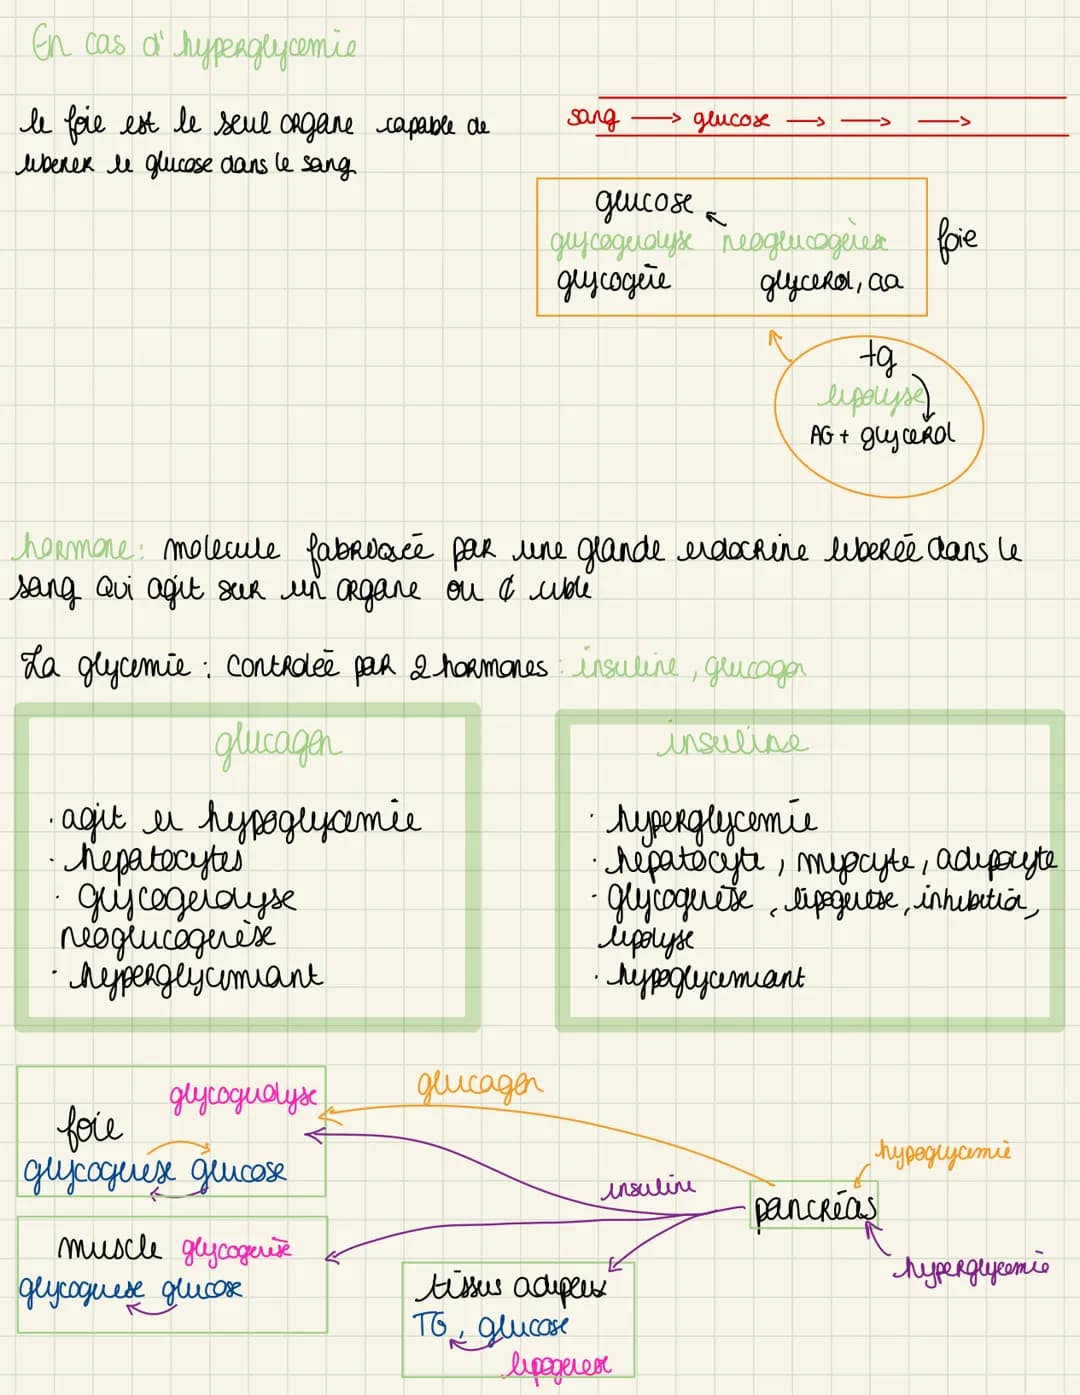 En cas d'hyperglycemie
le foie est le seul organe capable de
liberer le glucose dans le sang
sang → glucose → → →
glucose
glycogenolyse neoglucogènese
glycogène glycerol, aa
foie
tg
lipolyse
AG + glycerol
hormone : molecule fabriquée par une glande endocrine liberée dans le
sang qui agit sur un organe ou ¢ cible
La glycemie : controleé par 2 hormones : insuline, glucagon
glucagon
· agit en hypoglycemie
· hepatocytes
· glycogenolyse
neoglucogenèse
· hyperglycemiant
insuline
· hyperglycemie
· hepatocyte, myocyte, adipocyte
· glycogenèse, lipogenèse, inhibition,
lipolyse
· hypoglycemiant
glycogenolyse
foie
glycogenese glucose
glucagon
insuline
hypoglycemie
pancréas
hyperglycemie
muscle glycogenèse
glycogenese glucose
tissus adipeux
TG, glucose
lipogenese